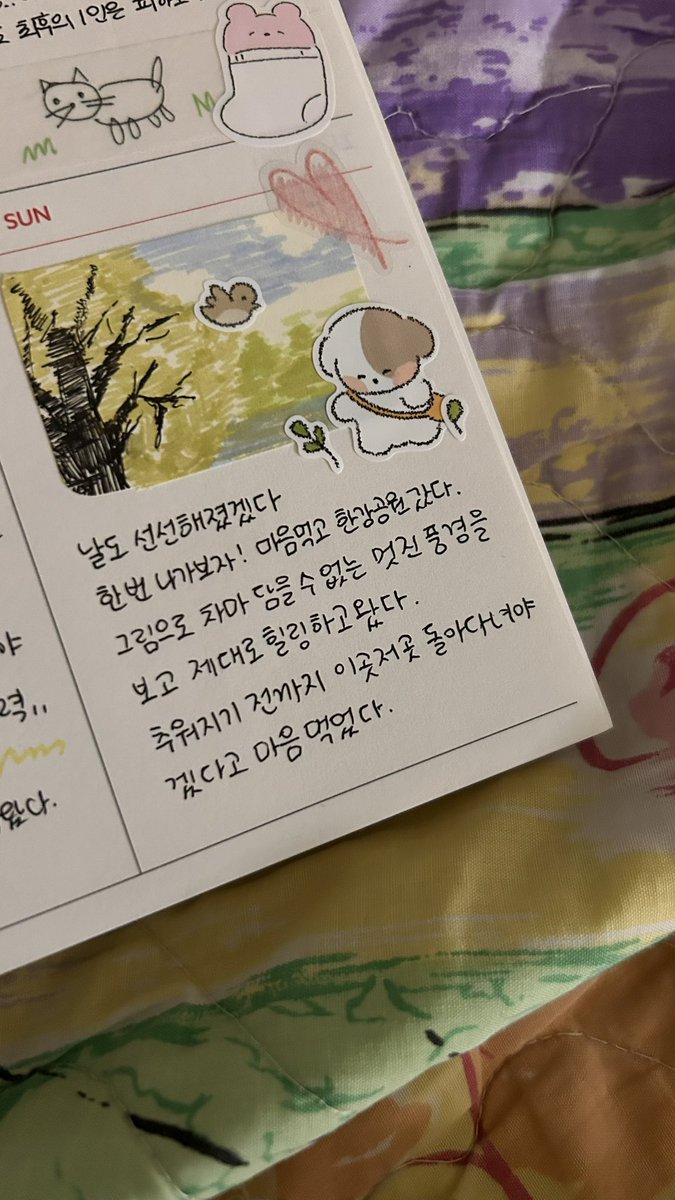 최후의 1인은
SUN
날도 선선해졌겠다
한번 나가보자! 마음먹고 한강공원 갔다.
그림으로 차마 담을 수 없는 멋진 풍경을
보고 제대로 힐링하고 왔다.
추워지기 전까지 이곳저곳 돌아다녀야
겠다고 마음먹었다.
야
력,,
왔다.